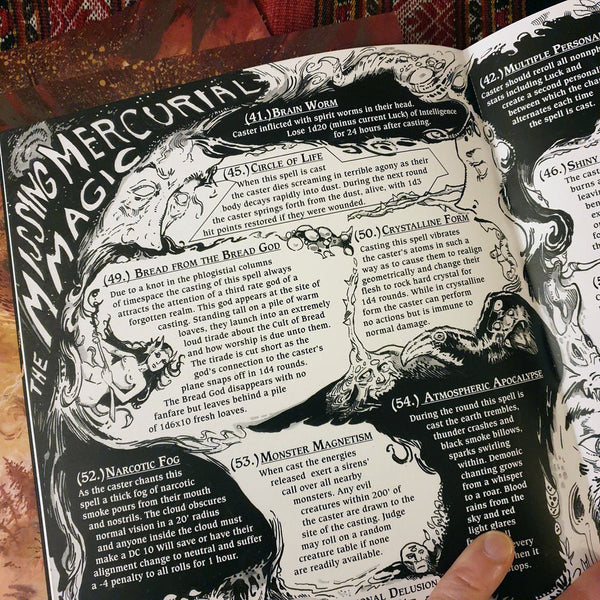 THE MISSING MERCURIAL MAGIC
(41.) BRAIN WORM
Caster inflicted with spirit worms in their head.
Lose 1d20 (minus current Luck) of Intelligence
for 24 hours after casting.
(45.) CIRCLE OF LIFE
When this spell is cast
the caster dies screaming in terrible agony as their
body decays rapidly into dust. During the next round
the caster springs forth from the dust, alive, with 1d3
hit points restored if they were wounded.
(49.) BREAD FROM THE BREAD GOD
Due to a knot in the phlogistial columns
of timespace the casting of this spell always
attracts the attention of a third rate god of a
forgotten realm. This god appears at the site of
casting. Standing tall on a pile of warm
loaves, they launch into an extremely
loud tirade about the Cult of Bread
and how worship is due unto them.
The tirade is cut short as the
god's connection to the caster's
plane snaps off in 1d4 rounds.
The Bread God disappears with no
fanfare but leaves behind a pile
of 1d6x10 fresh loaves.
(50.) CRYSTALLINE FORM
Casting this spell vibrates
the caster's atoms in such a
way as to cause them to realign
geometrically and change their
flesh to rock hard crystal for
1d4 rounds. While in crystalline
form the caster can perform
no actions but is immune to
normal damage.
(52.) NARCOTIC FOG
As the caster chants this
spell a thick fog of narcotic
smoke pours from their mouth
and nostrils. The cloud obscures
normal vision in a 20' radius
and anyone inside the cloud must
make a DC 10 Will save or have their
alignment change to neutral and suffer
a -4 penalty to all rolls for 1 hour.
(53.) MONSTER MAGNETISM
When cast the energies
released exert a sirens'
call over all nearby
monsters. Any evil
creatures within 200' of
the caster are drawn to the
site of the casting. Judge
may roll on a random
creature table if none
are readily available.
(54.) ATMOSPHERIC APOCALYPSE
During the round this spell is
cast the earth trembles,
thunder crashes and
black smoke billows,
sparks swirling
within. Demonic
chanting grows
from a whisper
to a roar. Blood
rains from the
sky and red
light glares
very
when it
DELUSION
(42.) MULTIPLE
Caster should reroll all
stats including Luck and
create a second
between which the
alternates each time
the spell is cast.
(46.) SHINY
The
burns